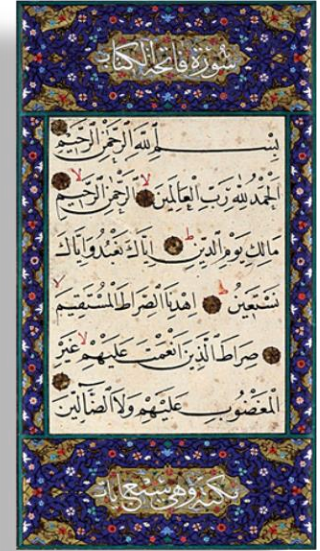 سورة فاتحة الكتاب
بسم الله الرحمن الرحيم
الحمد لله رب العالمين لا الرحمن الرحيم لا
مالك يوم الدين ط اياك نعبد واياك
نستعين ط اهدنا الصراط المستقيم لا
صراط الذين انعمت عليهم لا غير
المغضوب عليهم ولا الضالين
مكية وهي سبع ايات